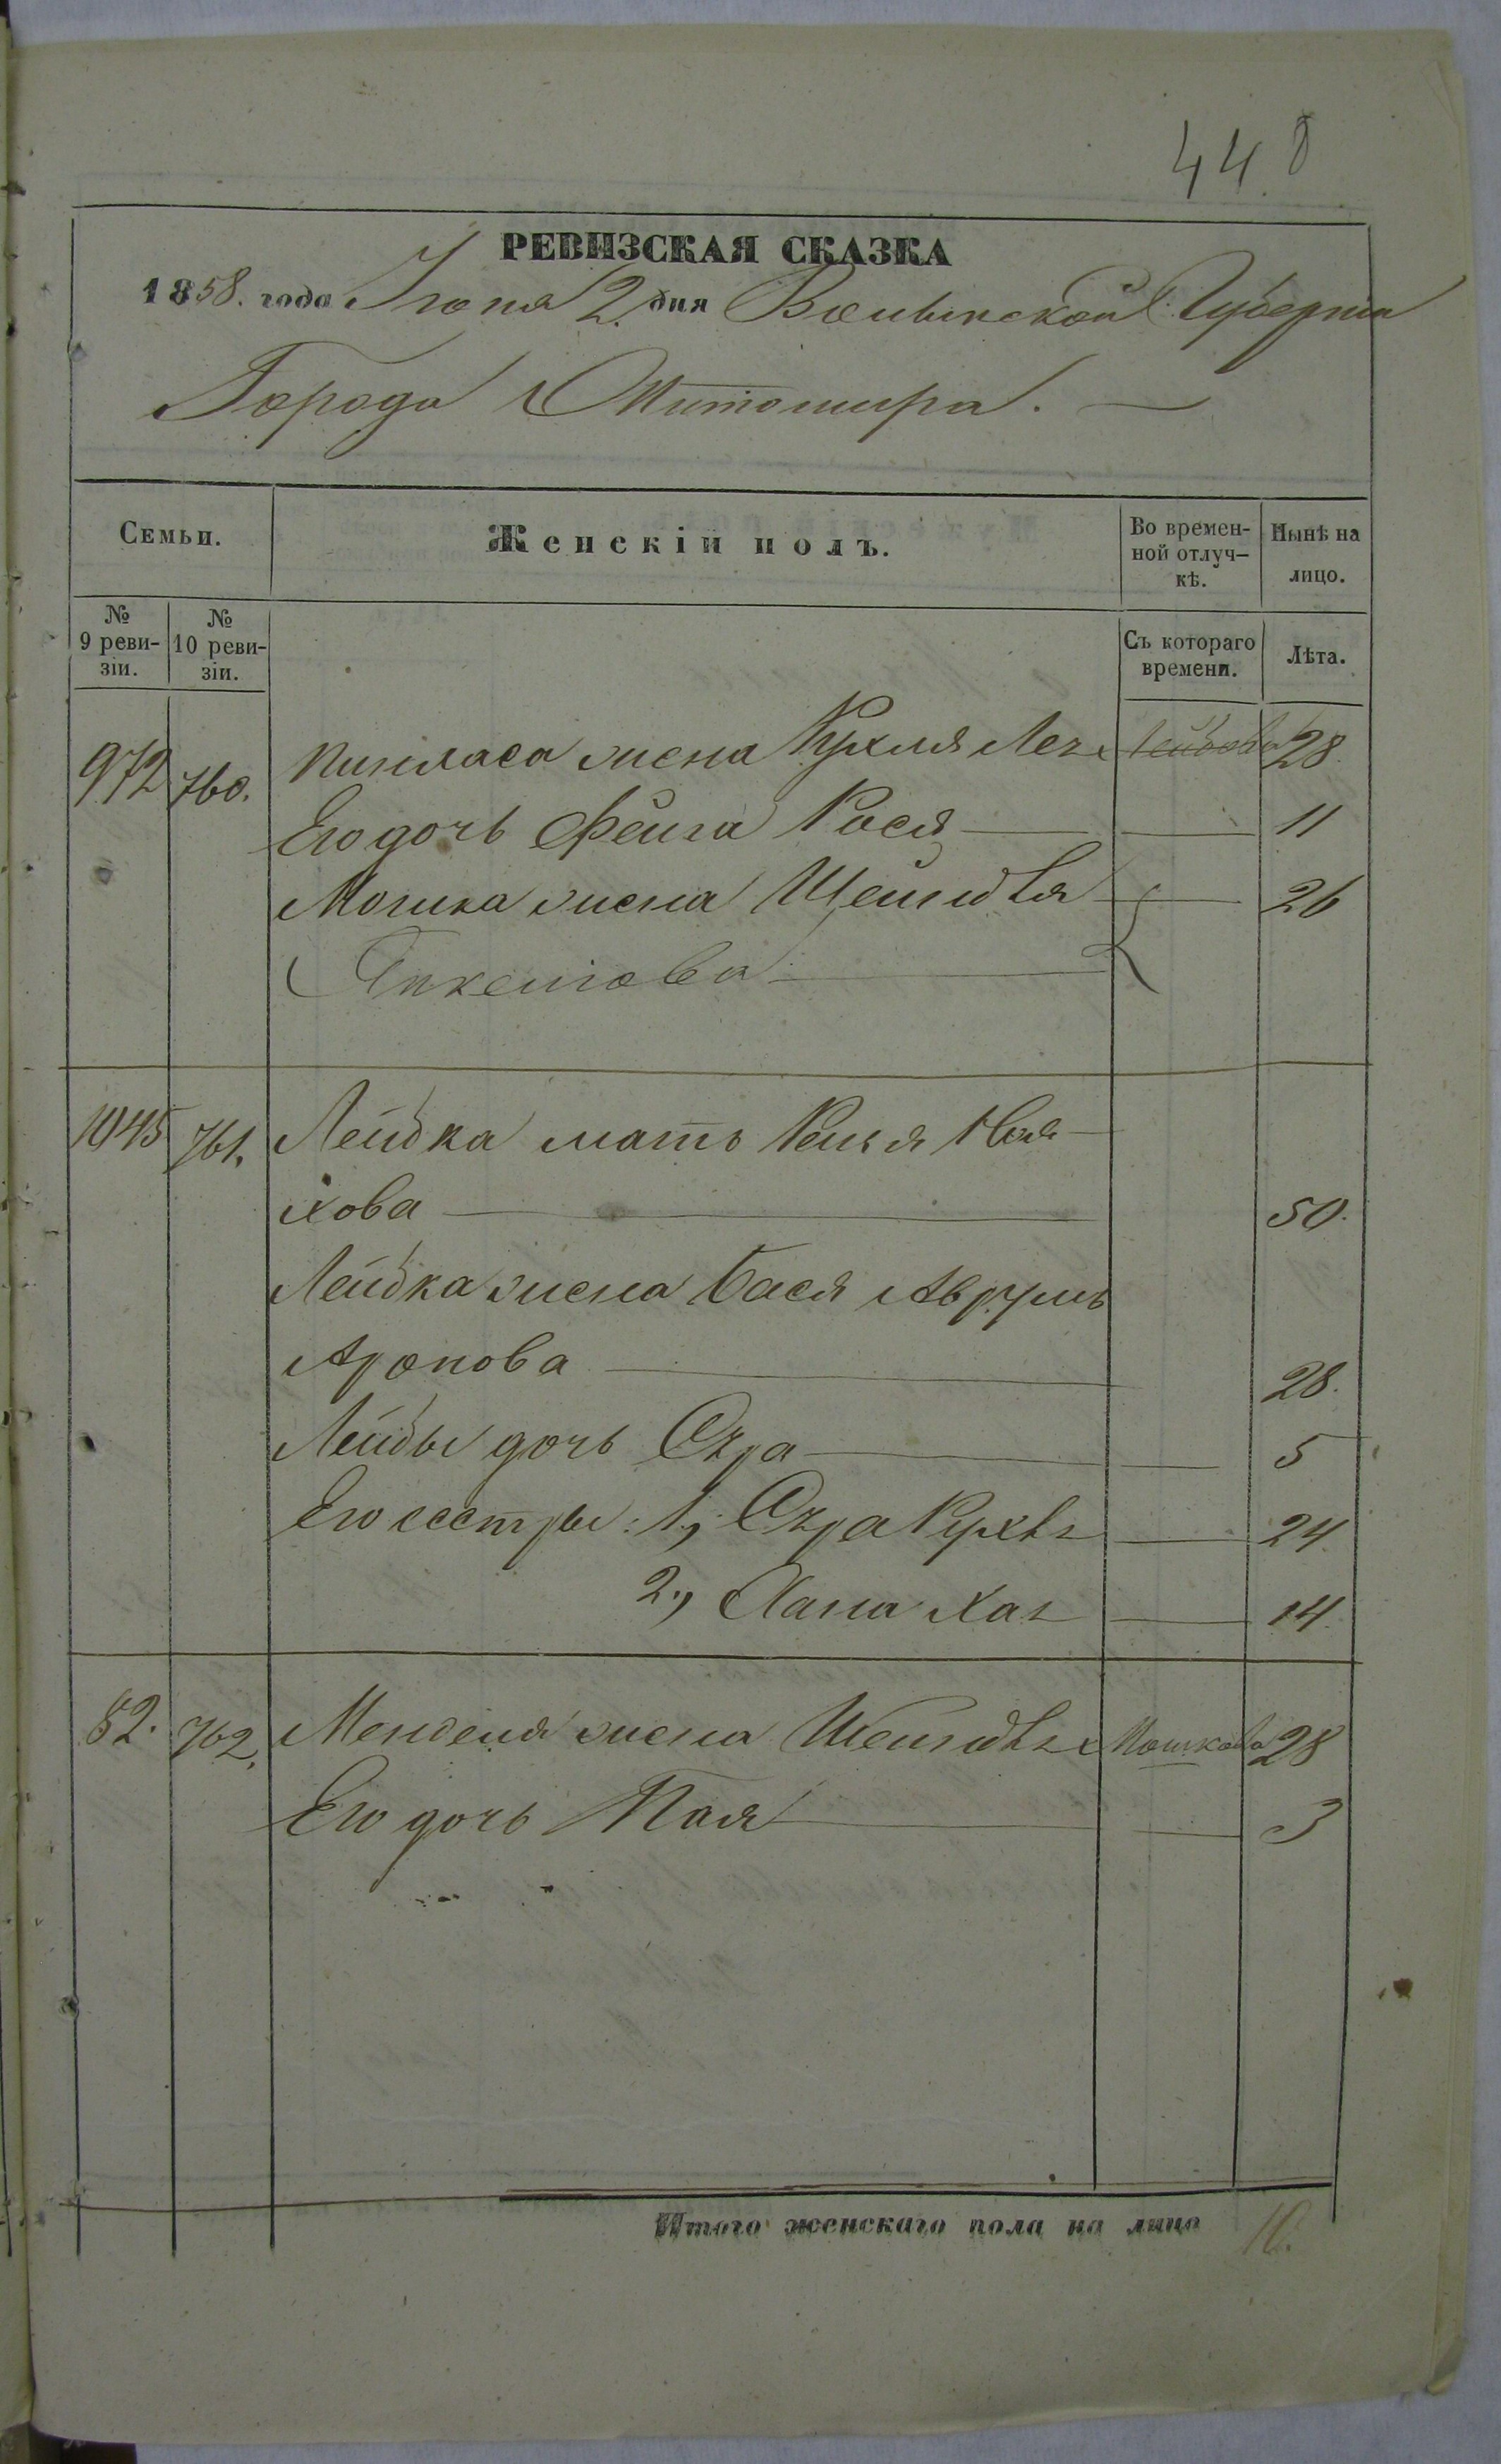 448
РЕВИЗСКАЯ СКАЗКА
1858. года Iюня 2. дня Волынской Губернiи
Города Житомира. —
Семьи.
Женскiй полъ.
Во времен-
ной отлуч-
кѣ.
Нынѣ на
лицо.
№
9 реви-
зiи.
№
10 реви-
зiи.
Съ котораго
времени.
Лѣта.
972 760. Пинхаса жена Рухля Лея Лейбова 28.
Его дочь Фейга Рося — 11
Мошка жена Шейндля — 26
Янкелiова
1045 761. Лейбка мать
хова 50.
Лейбка жена Бася Аврумъ
Аронова 28.
Лейбы дочь Сура — 5
Его сестры: 1, Сура Рухля — 24.
2, Хана Хая — 14.
82. 762. Менделя жена Шейндля Мошкова 28
Его дочь — 3
Итого женскаго пола на лицо 10.